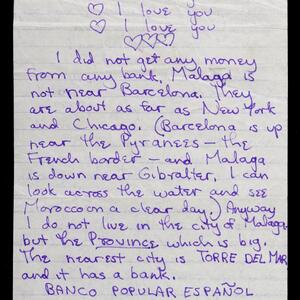 ♡ I love you
♡ I love you
♡♡♡
I did not get any money
from any bank. Malaga is
not near Barcelona. They
are about as far as New York
and Chicago. (Barcelona is up
near the Pyranees – the
French border – and Malaga
is down near Gibralter. I can
look across the water and see
Morocco on a clear day.) Anyway
I do not live in the city of Malaga
but the Province which is big.
The nearest city is TORRE DEL MAR
and it has a bank.
BANCO POPULAR ESPAÑOL